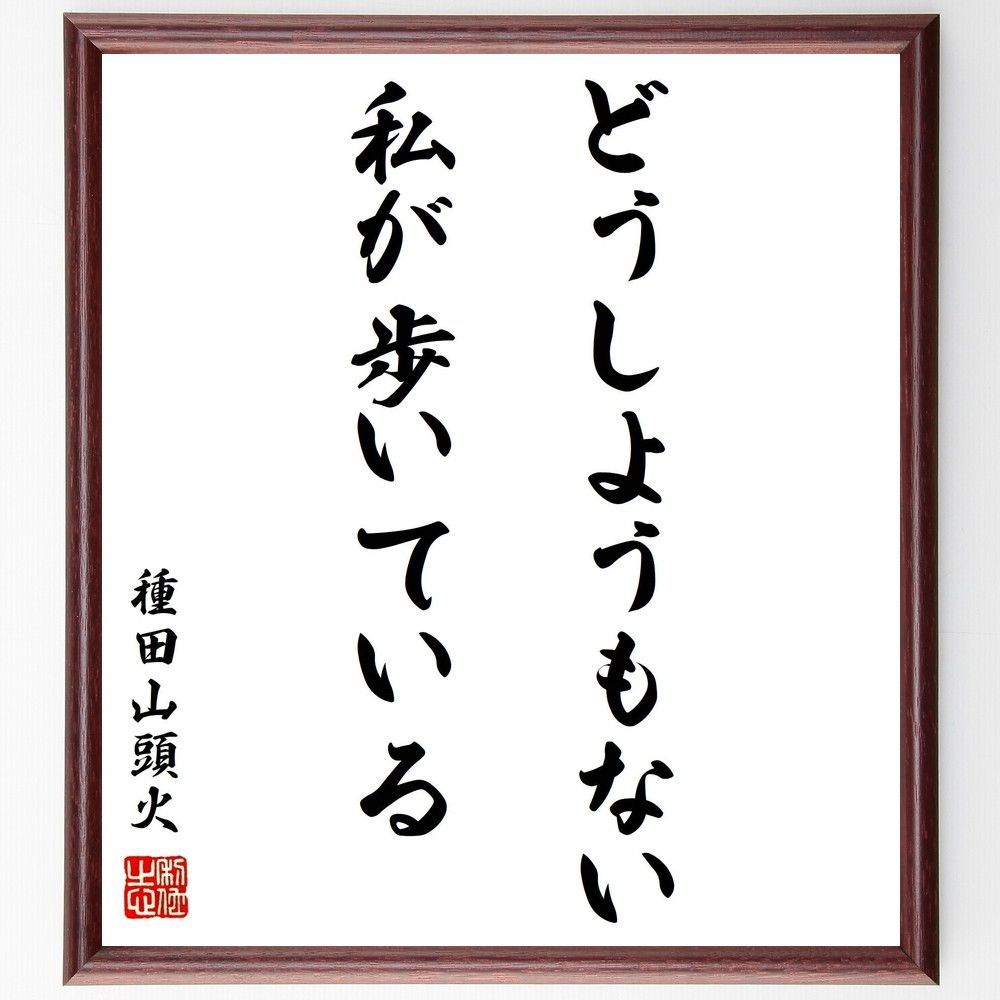 どうしようもない
私が歩いている
種田山頭火